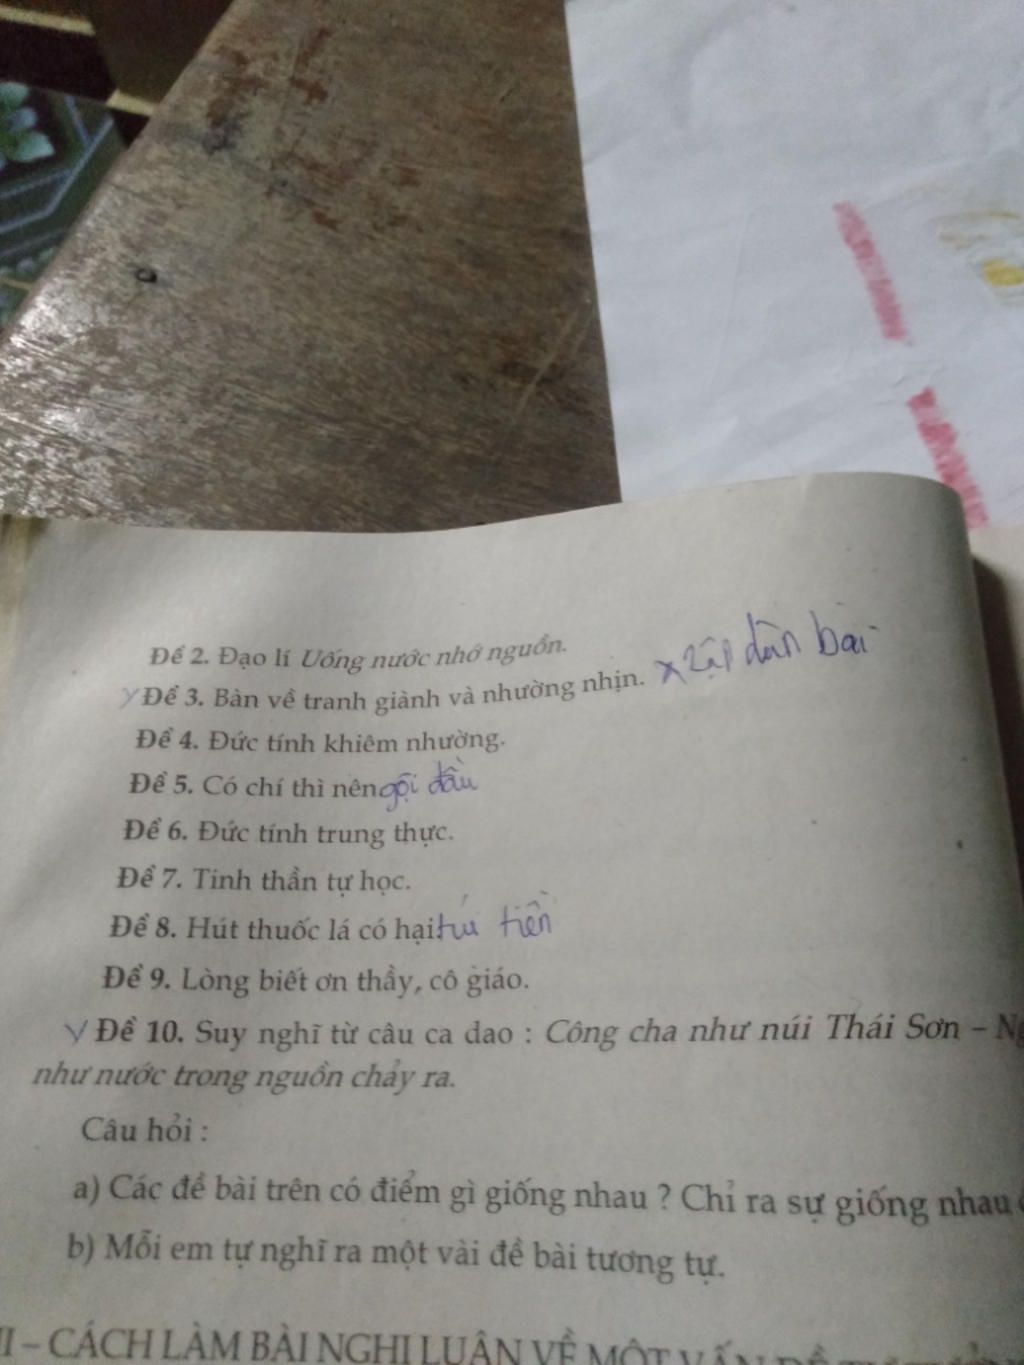 Đề 2. Đạo lí Uống nước nhớ nguồn.
Đề 3. Bàn về tranh giành và nhường nhịn. x Lập dàn bài
Đề 4. Đức tính khiêm nhường.
Đề 5. Có chí thì nên gội đầu
Đề 6. Đức tính trung thực.
Đề 7. Tinh thần tự học.
Đề 8. Hút thuốc lá có hại túi tiền
Đề 9. Lòng biết ơn thầy, cô giáo.
Đề 10. Suy nghĩ từ câu ca dao : Công cha như núi Thái Sơn –
như nước trong nguồn chảy ra.
Câu hỏi :
a) Các đề bài trên có điểm gì giống nhau ? Chỉ ra sự giống nhau
b) Mỗi em tự nghĩ ra một vài đề bài tương tự.
II – CÁCH LÀM BÀI NGHỊ LUẬN VỀ MỘT VẤN ĐỀ